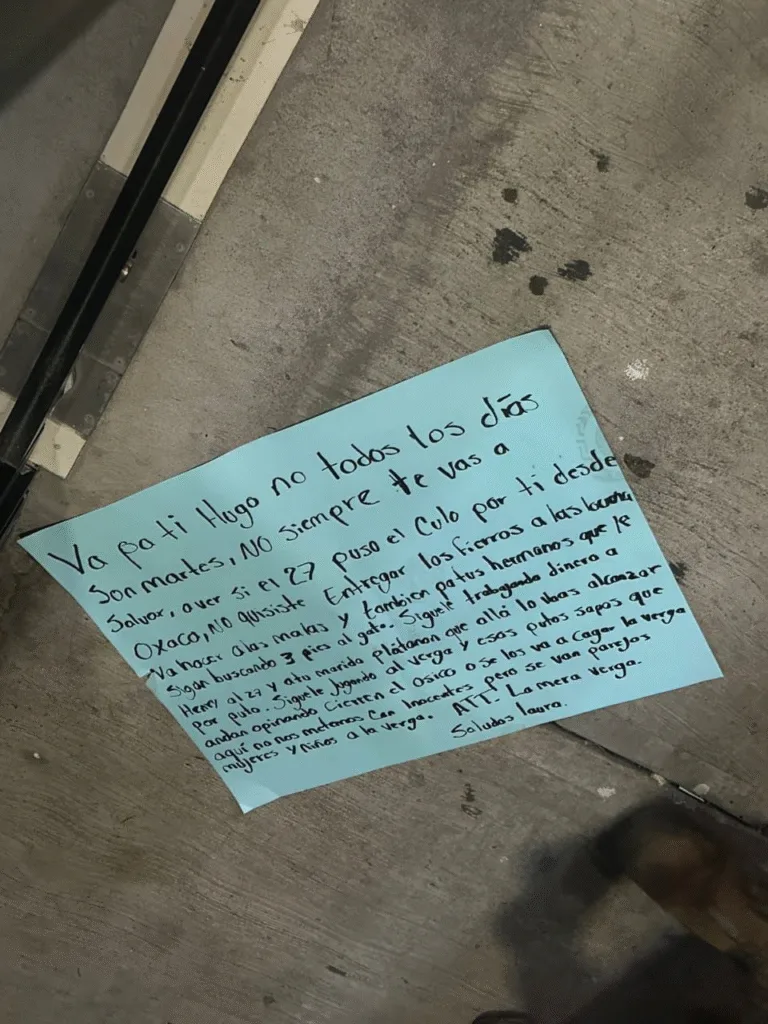 Va pa ti Hugo no todos los días
son martes, NO siempre te vas a
Salvar, aver si el 27 puso el Culo por ti desde
Oxaca, NO quisiste Entregar los fierros a las buena
Va hacer a las malas y tambien pa tus hermanos que le
Sigan buscando 3 pies al gato. Siguele trabajando dinero a
Henry al 27 y atu marido Platanon que alla lo ibas alcanzar
por puto. Siguele Jugando al verga y esos putos sapos que
andan opinando cierren el Osico o se los va a cagar la verga
aquí no nos metemos Con Inocentes pero se van parejos
mujeres y niños a la verga. ATT- La mera verga.
Saludos laura.